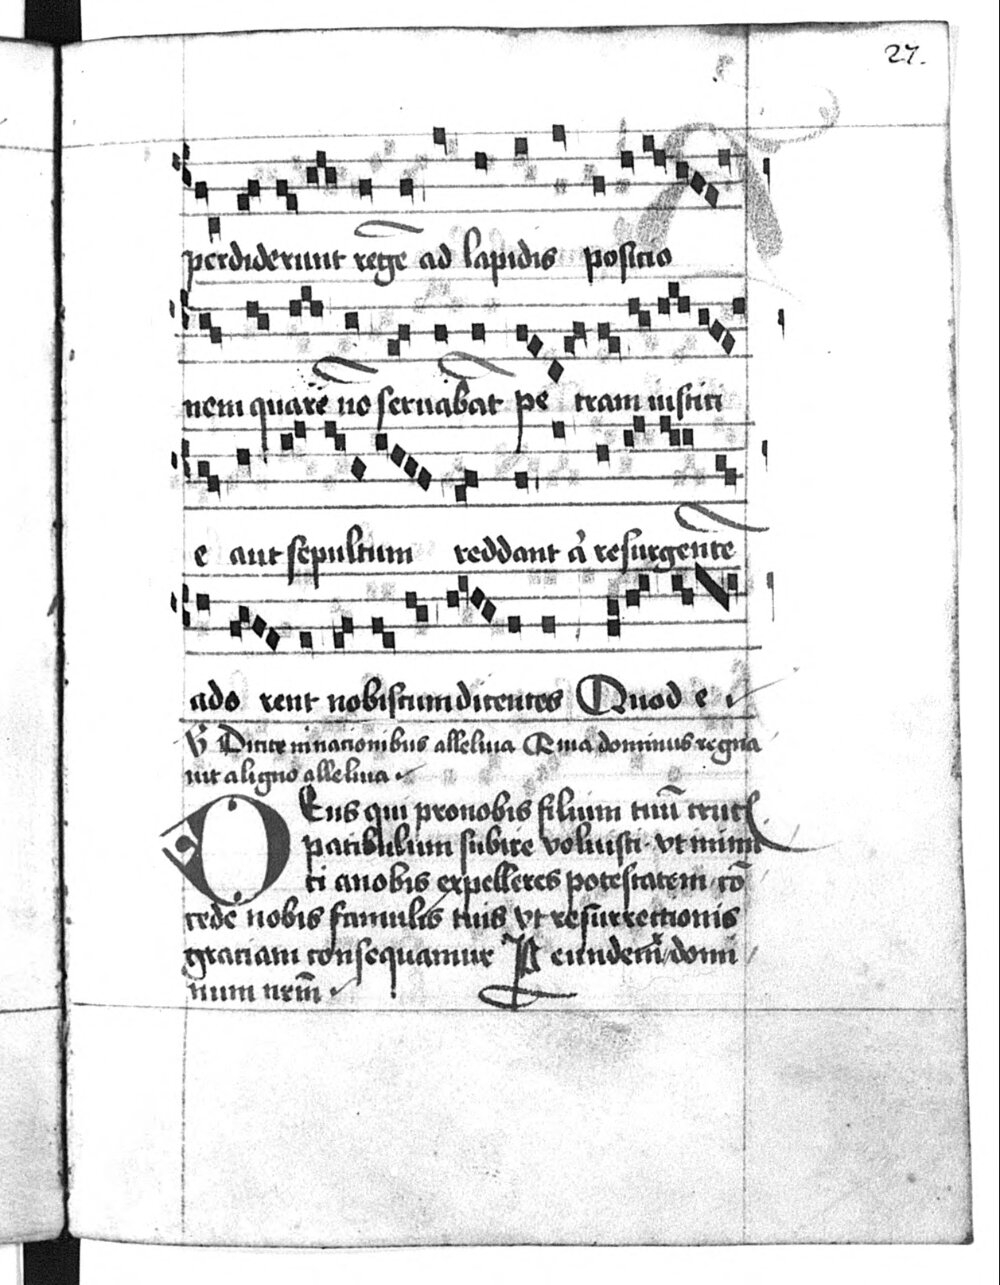 27.
perdiderunt regē ad lapidis positio
nem quare nō seruabāt pe tram iustici
e aut sepultum reddant a᷑ resurgentē
ado rent nobiscum dicentes Quod e
℣ Dicite in nacionibus alleluia Quia dominus regna
uit a ligno alleluia
Deus qui pro nobis filium tuū cruc̄
patibulum subire voluisti vt inimi
ci a nobis expelleres potestatem cō
cede nobis famulis tuis vt resurrectionis
graciam consequamur P eundem domi
num nrm̄